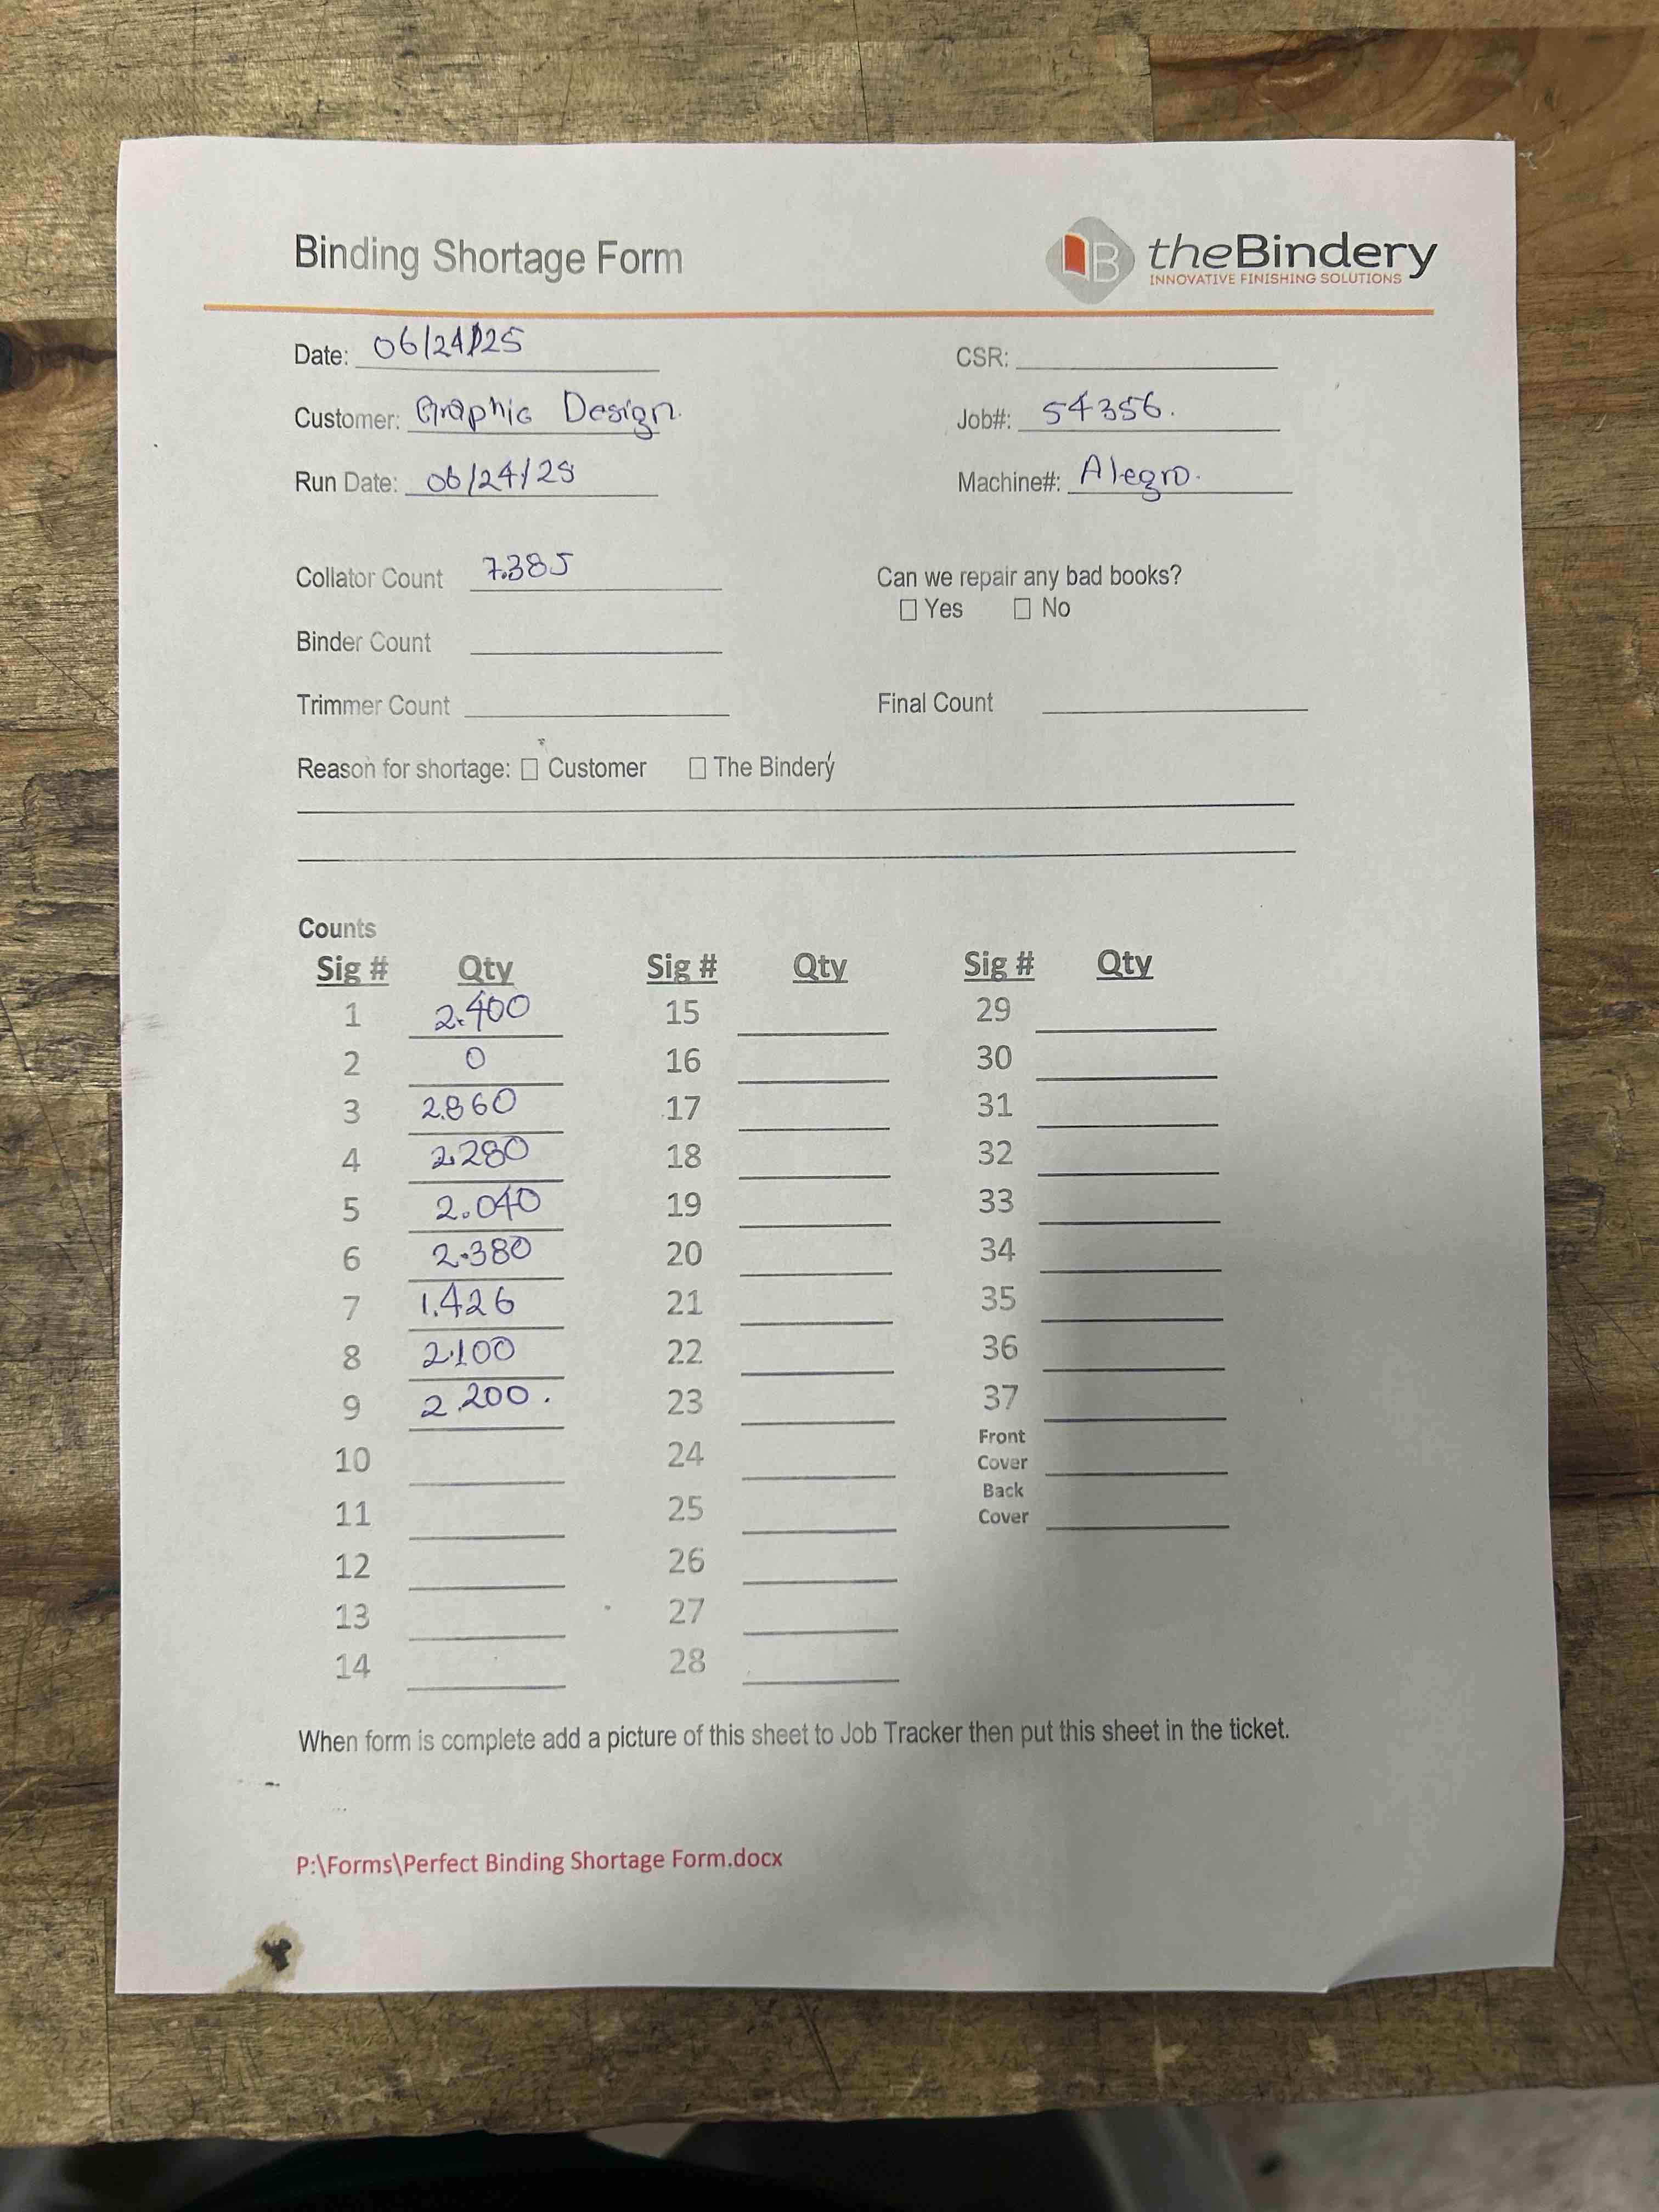 Binding Shortage Form
theBindery
INNOVATIVE FINISHING SOLUTIONS
Date: 06/24/25
CSR:
Customer: Graphic Design.
Job#: 54356.
Run Date: 06/24/25
Machine#: Alegro.
Collator Count 7.385
Can we repair any bad books?
☐ Yes ☐ No
Binder Count
Trimmer Count
Final Count
Reason for shortage: ☐ Customer ☐ The Bindery
Counts
Sig # Qty Sig # Qty Sig # Qty
1 2.400 15 29
2 0 16 30
3 2.860 17 31
4 2.280 18 32
5 2.040 19 33
6 2.380 20 34
7 1.426 21 35
8 2.100 22 36
9 2.200. 23 37
10 24 Front Cover
11 25 Back Cover
12 26
13 27
14 28
When form is complete add a picture of this sheet to Job Tracker then put this sheet in the ticket.
P:\Forms\Perfect Binding Shortage Form.docx